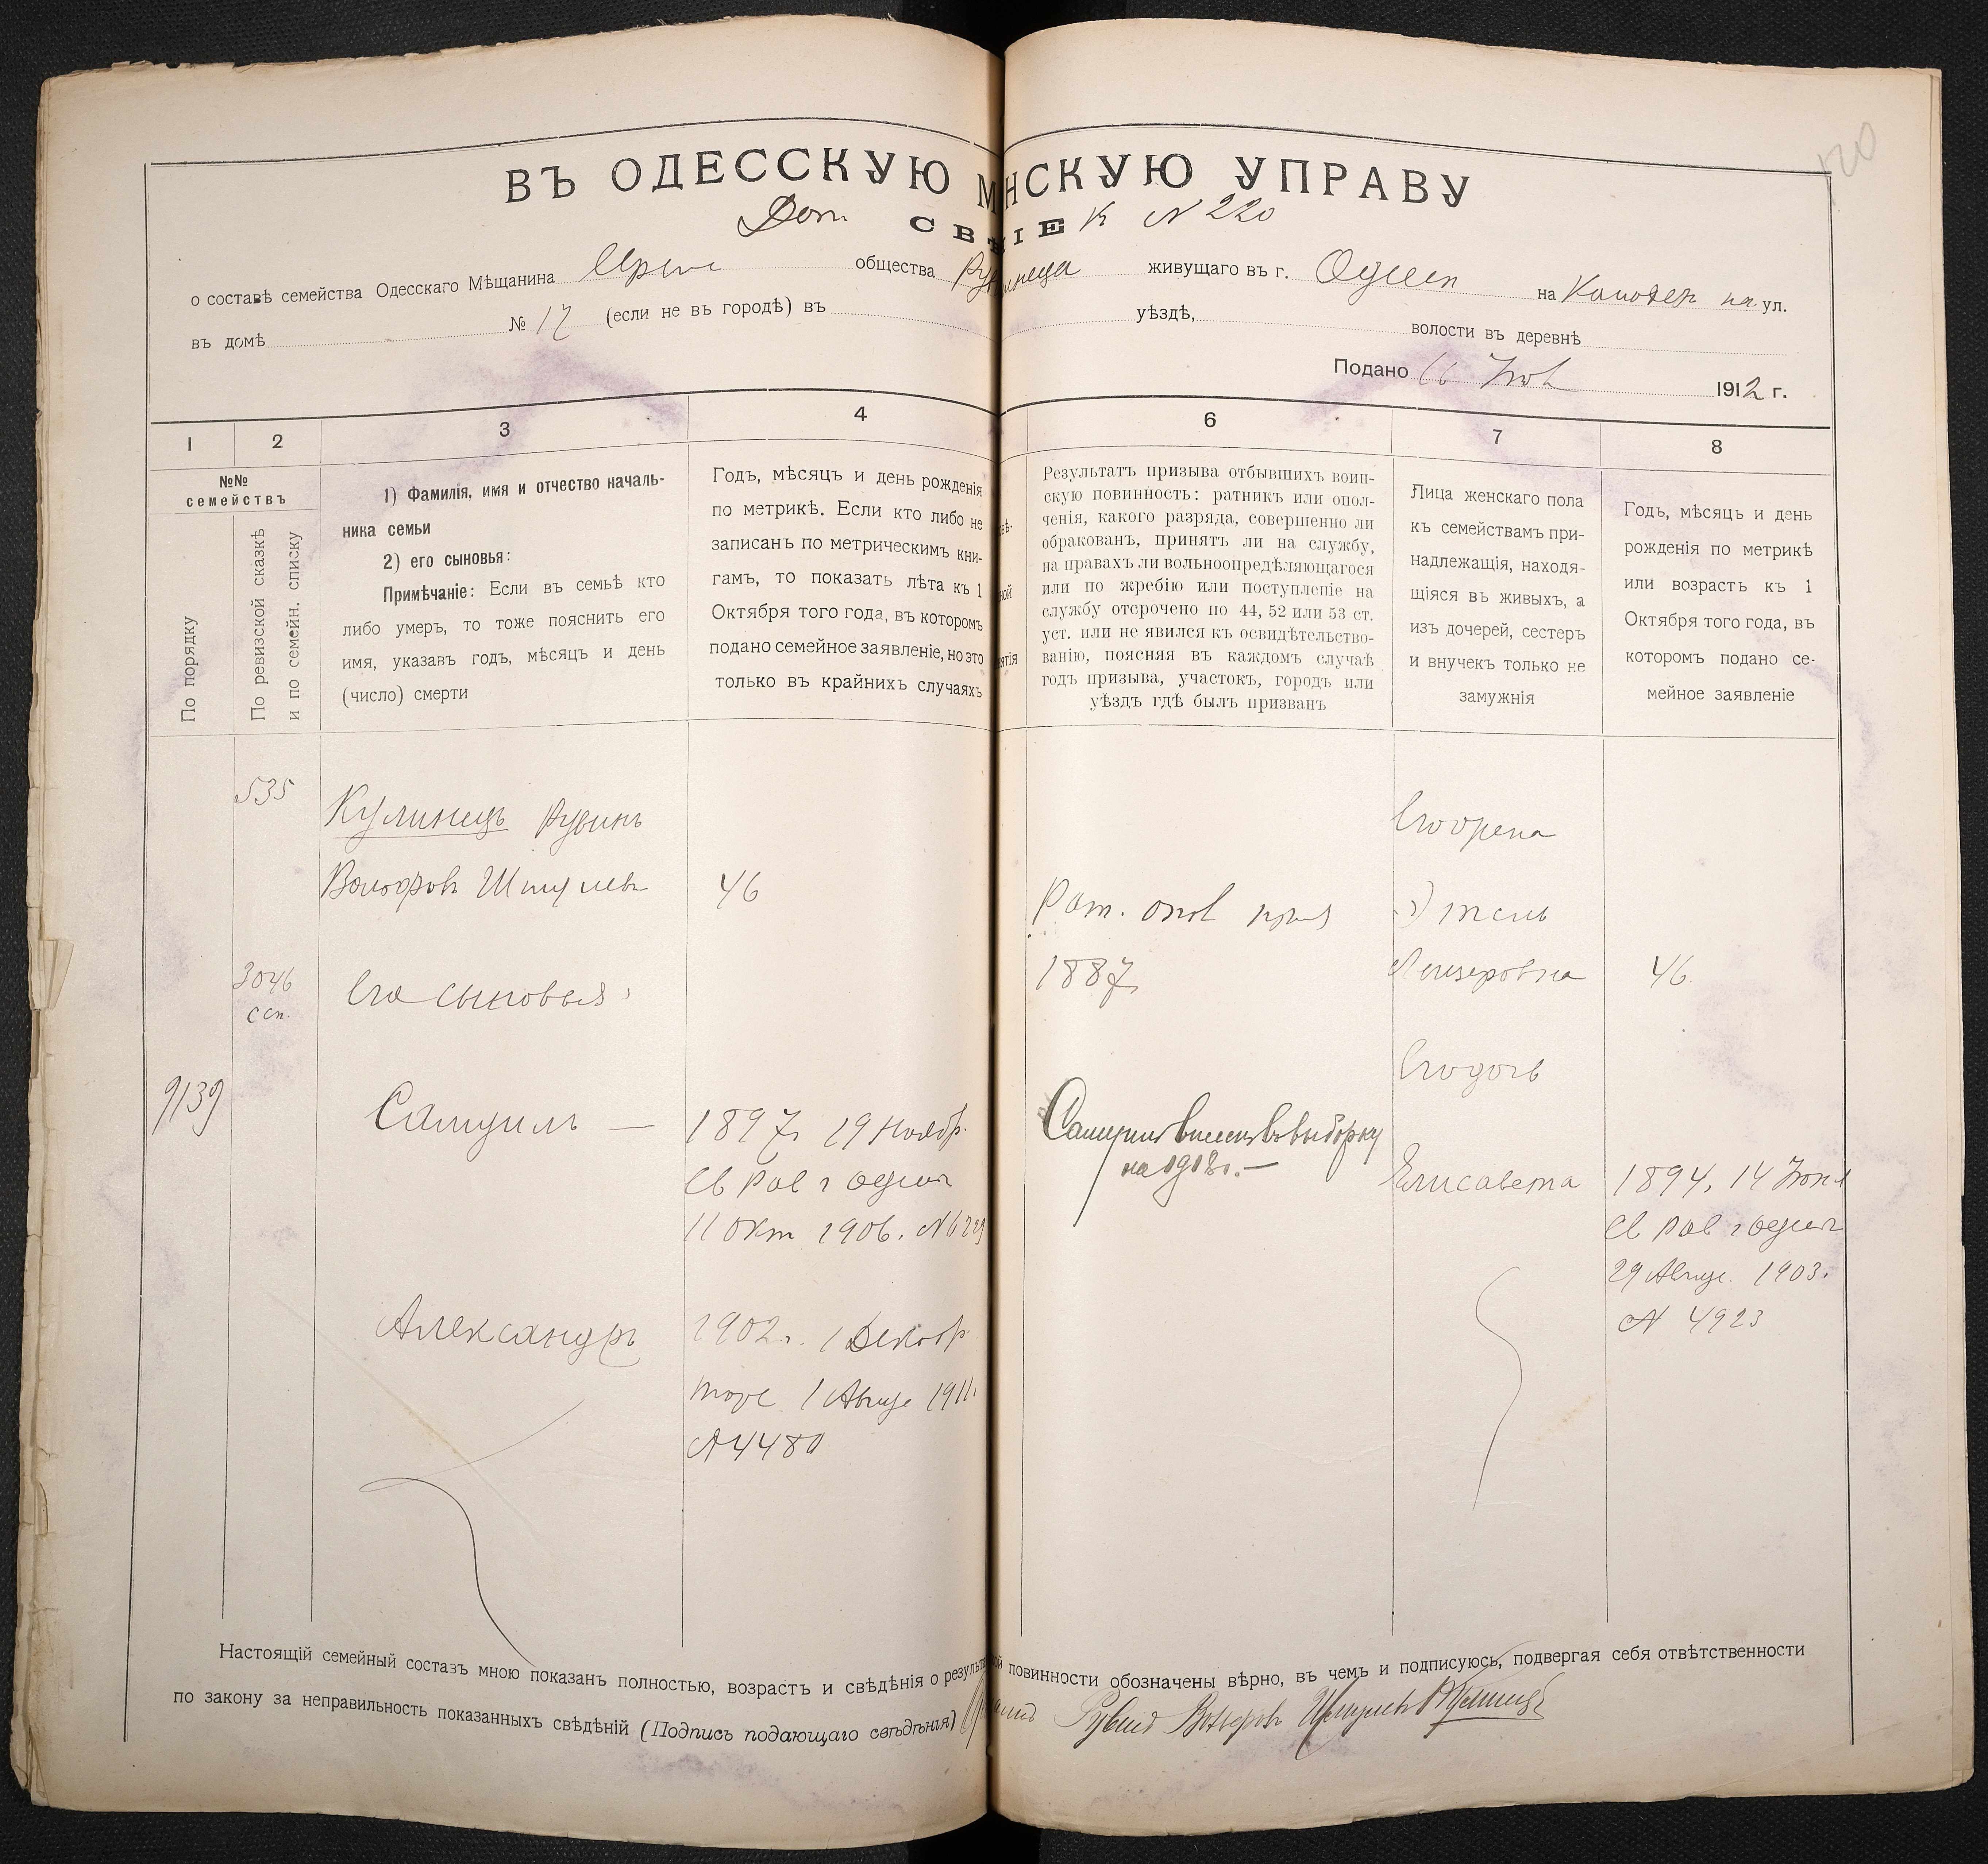 120
ВЪ ОДЕССКУЮ М НСКУЮ УПРАВУ
Доп. к № 220
СВѢ ІЕ
о составѣ семейства Одесскаго Мѣщанина общества живущаго въ г. Одессѣ на ул.
въ домѣ № 17 (если не въ городѣ) въ уѣздѣ, волости въ деревнѣ
Подано 1912 г.
1 2 3 4 6 7 8
№№
семействъ
По порядку
По ревизской сказкѣ
и по семейн. списку
1) Фамилія, имя и отчество началь-
ника семьи
2) его сыновья:
Примѣчаніе: Если въ семьѣ кто
либо умеръ, то тоже пояснить его
имя, указавъ годъ, мѣсяцъ и день
(число) смерти
Годъ, мѣсяцъ и день рожденія
по метрикѣ. Если кто либо не
записанъ по метрическимъ кни-
гамъ, то показать лѣта къ 1
Октября того года, въ которомъ
подано семейное заявленіе, но это
только въ крайнихъ случаяхъ
Результатъ призыва отбывшихъ воин-
скую повинность: ратникъ или опол-
ченія, какого разряда, совершенно ли
обракованъ, принятъ ли на службу,
на правахъ ли вольноопредѣляющагося
или по жребію или поступленіе на
службу отсрочено по 44, 52 или 53 ст.
уст. или не явился къ освидѣтельство-
ванію, поясняя въ каждомъ случаѣ
годъ призыва, участокъ, городъ или
уѣздъ гдѣ былъ призванъ
Лица женскаго пола
къ семействамъ при-
надлежащія, находя-
щіяся въ живыхъ, а
изъ дочерей, сестеръ
и внучекъ только не
замужнія
Годъ, мѣсяцъ и день
рожденія по метрикѣ
или возрастъ къ 1
Октября того года, въ
которомъ подано се-
мейное заявленіе
535
Кулинецъ Рувинъ
Вольфовъ Шмулев 46
3046
ссп.
Его сыновья:
9139
Самуилъ — 1897 г. 19 Ноябр.
св рав г Одессы
11 Окт 1906.
Александръ 1902 г. 1 Декабр
тоже 1 Авгус 1911.
№ 4480
Рат. опол
1887
Самуилъ внесенъ въ выборку
на 1918 г. —
Его жена
Этель
Лейзеровна 46.
Его дочь
Елисавета 1894, 14 Іюня
св рав г Одессы
29 Авгус. 1903.
№ 4923
Настоящій семейный составъ мною показанъ полностью, возрастъ и свѣдѣнія о результа ой повинности обозначены вѣрно, въ чемъ и подписуюсь, подвергая себя отвѣтственности
по закону за неправильность показанныхъ свѣдѣній (Подпись подающаго свѣдѣнія) Рувинъ Вольфовъ Шмулевъ Кулинецъ